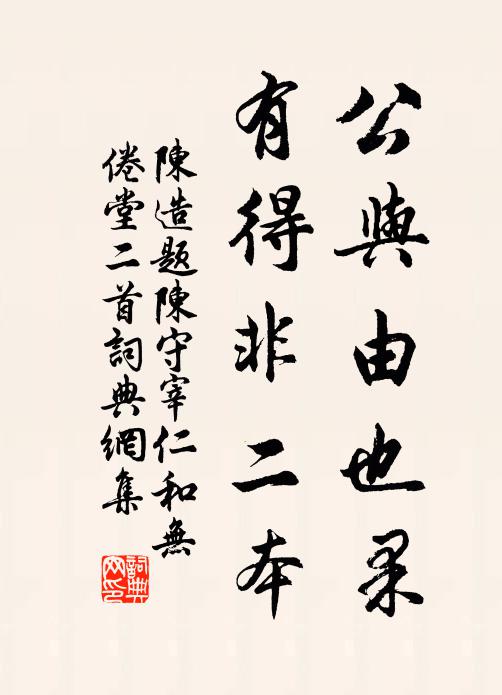 公與由也果
有得非二本
陳造題陳守宰仁和無
倦堂二首詞典網集
詞典
网印